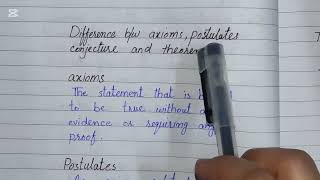 Difference b/w axioms, postulates
conjecture and
axioms
The statement that is
to be true without
evidence or requiring
proof.
Postulates